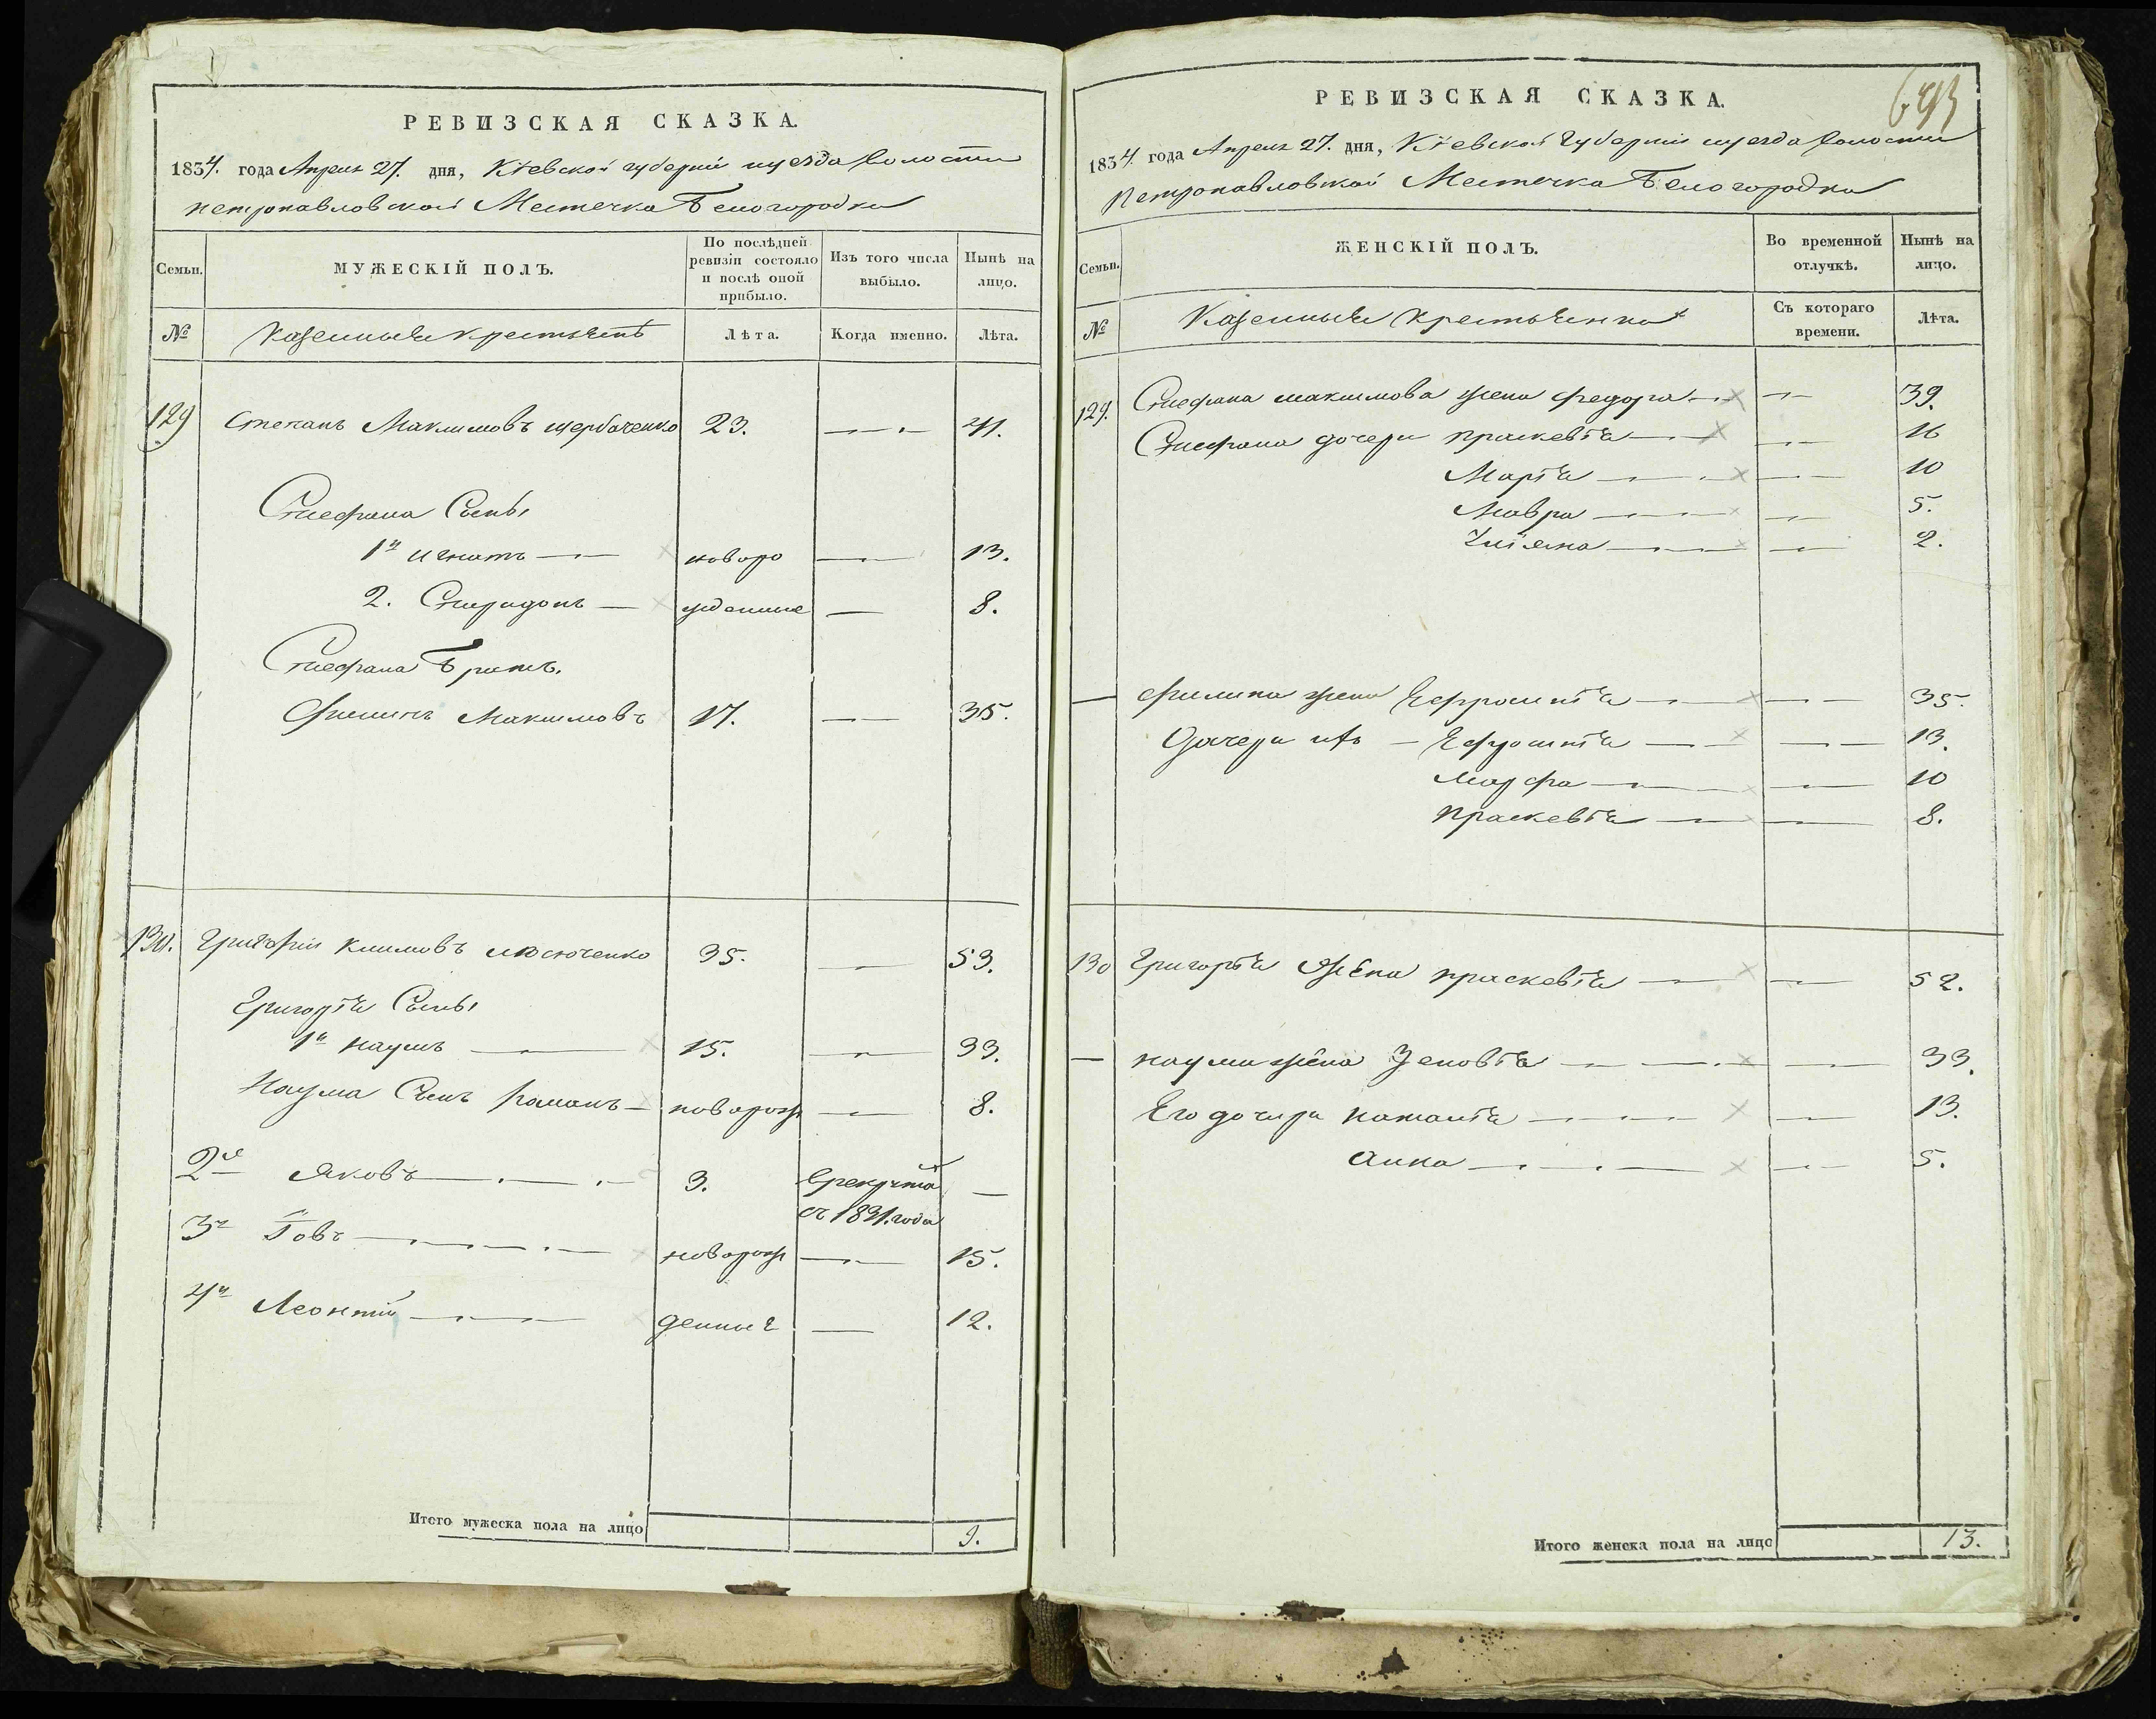 РЕВИЗСКАЯ СКАЗКА.
1834. года Апреля 27. дня, Кіевской губерніи и уезда Волости
петропавловской Местечка Белогородки
Семьи. МУЖЕСКІЙ ПОЛЪ. По послѣдней ревизіи состояло и послѣ оной прибыло. Изъ того числа выбыло. Нынѣ на лицо.
№ Казенные крестьянѣ Лѣта. Когда именно. Лѣта.
129 Степанъ Максимовъ щербаченко 23. 41.
Стефана Сыны
1й игнатъ новоро 13.
2. Спиридонъ жденные 8.
Стефана Братъ.
Филипъ Максимовъ 17. 35.
130. Григорій климовъ 35. 53.
Григорія Сыны
1й наумъ 15. 33.
Наума Сынъ романъ новорож 8.
2й Яковъ 3. в рекруты
съ 1831. года
3й Іовъ новорож 15.
4й Леонтій денные 12.
Итого мужеска пола на лицо 9.
РЕВИЗСКАЯ СКАЗКА.
1834. года Апреля 27. дня, Кіевской Губерніи и уезда Волости
Петропавловской Местечка Белогородки
Семьи. ЖЕНСКІЙ ПОЛЪ. Во временной отлучкѣ. Нынѣ на лицо.
№ Казенные крестьянки Съ котораго времени. Лѣта.
129. Стефана максимова жена федора 39.
Стефана дочери праскевія 16
Марія 10
Мавра 5.
2.
Филипа жена Ефросинія 35.
Дочери ихъ Ефросинія 13.
марфа 10
праскевія 8.
130 Григорія жена праскевія 52.
наума жена Зеновія 33.
Его дочери наталія 13.
анна 5.
Итого женска пола на лицо 13.